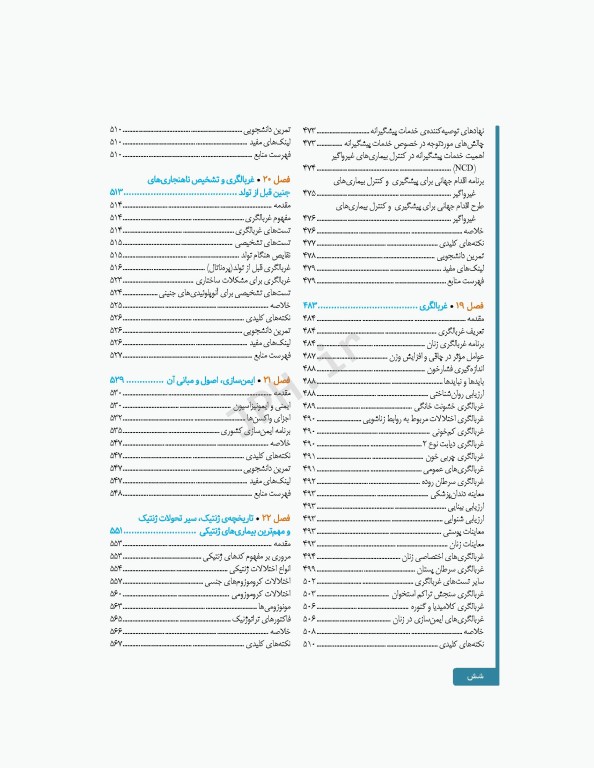 نهادهای توصیه‌کننده‌ی خدمات پیشگیرانه ۴۷۳
چالش‌های موردتوجه در خصوص خدمات پیشگیرانه ۴۷۳
اهمیت خدمات پیشگیرانه در کنترل بیماری‌های غیرواگیر
(NCD) ۴۷۴
برنامه اقدام جهانی برای پیشگیری و کنترل بیماری‌های
غیرواگیر ۴۷۵
طرح اقدام جهانی برای پیشگیری و کنترل بیماری‌های
غیرواگیر ۴۷۶
خلاصه ۴۷۶
نکته‌های کلیدی ۴۷۷
تمرین دانشجویی ۴۷۸
لینک‌های مفید ۴۷۹
فهرست منابع ۴۷۹
فصل ۱۹ • غربالگری ۴۸۳
مقدمه ۴۸۴
تعریف غربالگری ۴۸۴
برنامه غربالگری زنان ۴۸۴
عوامل مؤثر در چاقی و افزایش وزن ۴۸۷
اندازه‌گیری فشارخون ۴۸۸
بایدها و نبایدها ۴۸۸
ارزیابی روان‌شناختی ۴۸۸
غربالگری خشونت خانگی ۴۸۹
غربالگری اختلالات مربوط به روابط زناشویی ۴۹۰
غربالگری کم‌خونی ۴۹۰
غربالگری دیابت نوع ۲ ۴۹۰
غربالگری چربی خون ۴۹۱
غربالگری‌های عمومی ۴۹۱
غربالگری سرطان روده ۴۹۲
معاینه دندان‌پزشکی ۴۹۳
ارزیابی بینایی ۴۹۳
ارزیابی شنوایی ۴۹۳
معاینات پوستی ۴۹۳
معاینات زنان ۴۹۳
غربالگری‌های اختصاصی زنان ۴۹۴
غربالگری سرطان پستان ۴۹۹
سایر تست‌های غربالگری ۵۰۲
غربالگری سنجش تراکم استخوان ۵۰۳
غربالگری کلامیدیا و گنوره ۵۰۶
غربالگری‌های ایمن‌سازی در زنان ۵۰۶
خلاصه ۵۰۸
نکته‌های کلیدی ۵۱۰
تمرین دانشجویی ۵۱۰
لینک‌های مفید ۵۱۰
فهرست منابع ۵۱۰
فصل ۲۰ • غربالگری و تشخیص ناهنجاری‌های
جنین قبل از تولد ۵۱۳
مقدمه ۵۱۴
مفهوم غربالگری ۵۱۴
تست‌های غربالگری ۵۱۴
تست‌های تشخیصی ۵۱۵
نقایص هنگام تولد ۵۱۵
غربالگری قبل از تولد(پره‌ناتال) ۵۱۶
غربالگری برای مشکلات ساختاری ۵۲۳
تست‌های تشخیصی برای آنوپلوئیدی‌های جنینی ۵۲۴
خلاصه ۵۲۵
نکته‌های کلیدی ۵۲۶
تمرین دانشجویی ۵۲۶
لینک‌های مفید ۵۲۶
فهرست منابع ۵۲۷
فصل ۲۱ • ایمن‌سازی، اصول و مبانی آن ۵۲۹
مقدمه ۵۳۰
ایمنی و ایمونیزاسیون ۵۳۰
اجزای واکسن‌ها ۵۳۲
برنامه ایمن‌سازی کشوری ۵۳۵
خلاصه ۵۴۷
نکته‌های کلیدی ۵۴۷
تمرین دانشجویی ۵۴۷
لینک‌های مفید ۵۴۷
فهرست منابع ۵۴۸
فصل ۲۲ • تاریخچه‌ی ژنتیک، سیر تحولات ژنتیک
و مهم‌ترین بیماری‌های ژنتیکی ۵۵۱
مقدمه ۵۵۳
مروری بر مفهوم کدهای ژنتیکی ۵۵۳
انواع اختلالات ژنتیکی ۵۵۴
اختلالات کروموزوم‌های جنسی ۵۵۷
اختلالات کروموزومی ۵۶۰
مونوزومی‌ها ۵۶۳
فاکتورهای تراتوژنیک ۵۶۵
خلاصه ۵۶۶
نکته‌های کلیدی ۵۶۷
شش